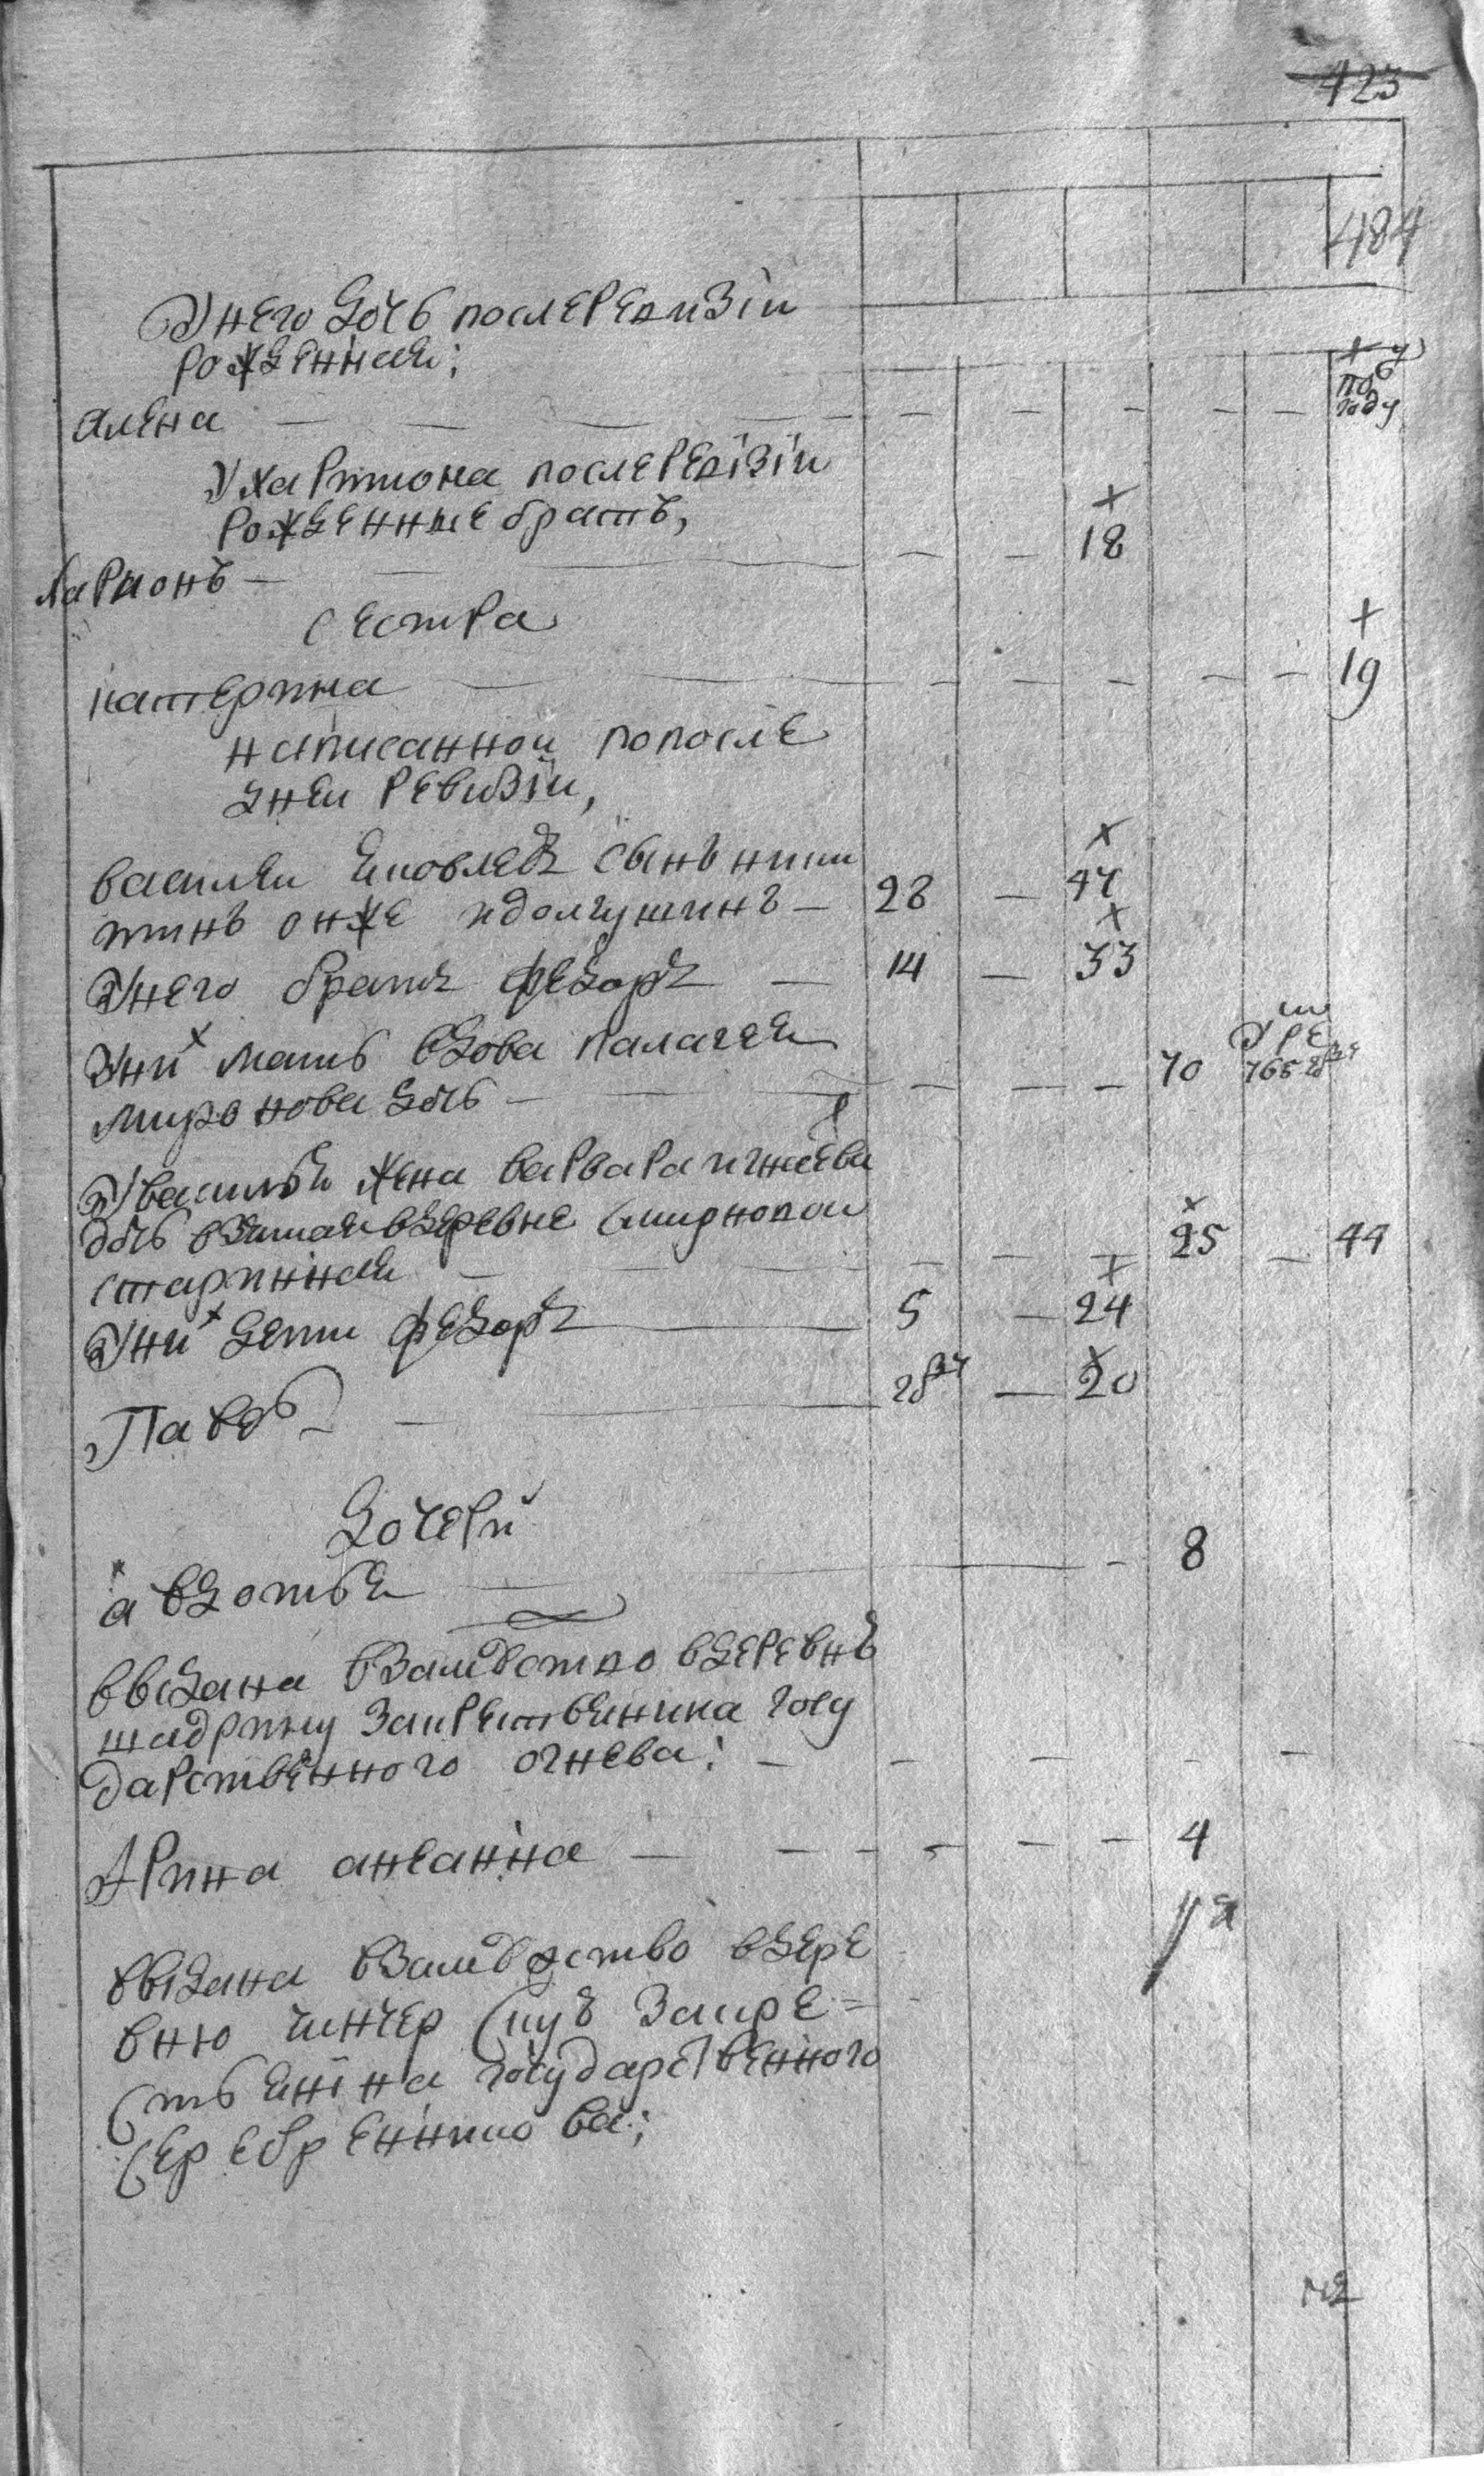 423
484
У него дочь послеревизiи
рожденная;
алена — — — — — — — — — по году
У харитона послеревiзiи
рожденные братъ,
ларионъ — — — — — 18
сестра
катерина — — — — — — — — 19
написанной попосле
дней ревизiи,
василеи яковлевъ сынъ ники
тинъ онже идолгушинъ — 28 — 47
У него братъ федоръ — 14 — 33
У них мать вдова палагея
миронова дочь — — — — — 70 умре 765 году
У василья жена варвара игнатьева
дочь взятая вдеревне смирновои
стариннаея — — — — — — 25 — 44
У них дети федоръ — 5 — 24
Павелъ — — 2 году — 20
Дочери
авдотья — — — 8
выдана взамуство вдеревнъ
шадрину закрестьянина госу
дарственного огнева; — — — — —
Арина — — — — — — 4
выдана взамужство вдере
вню закре=
стьянина государственного
серебренникова;